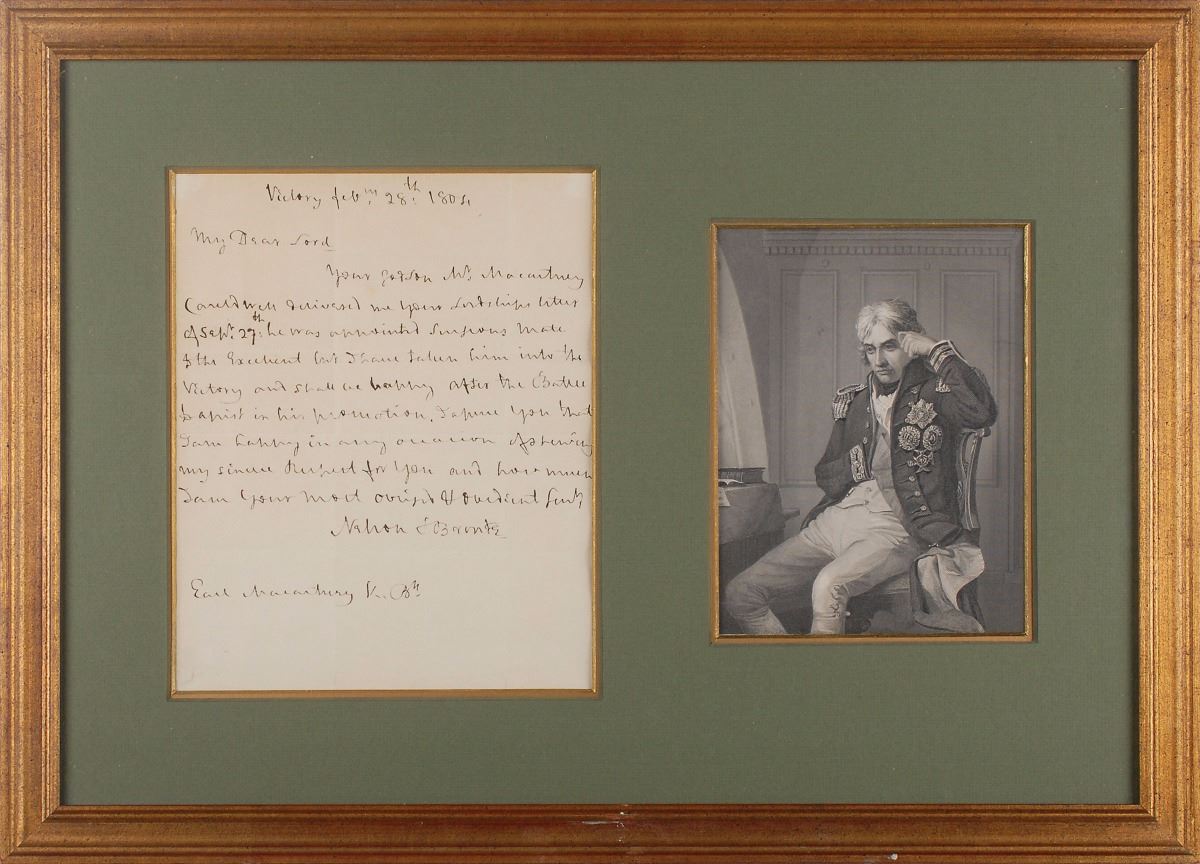 Victory feby 28th: 1804
My Dear Lord
Your godson Mr. Macartney
Cauldwell delivered me your Lordships letter
of Sept. 27th: he was appointed Surgeons Mate
of the Excellent but I have taken him into the
Victory and shall be happy after the Battle
to assist in his promotion, I assure you that
I am happy in any occasion of shewing
my sincere Respect for You and how much
I am Your most obliged & obedient Servt,
Nelson & Bronte
Earl Macartney K. Bth